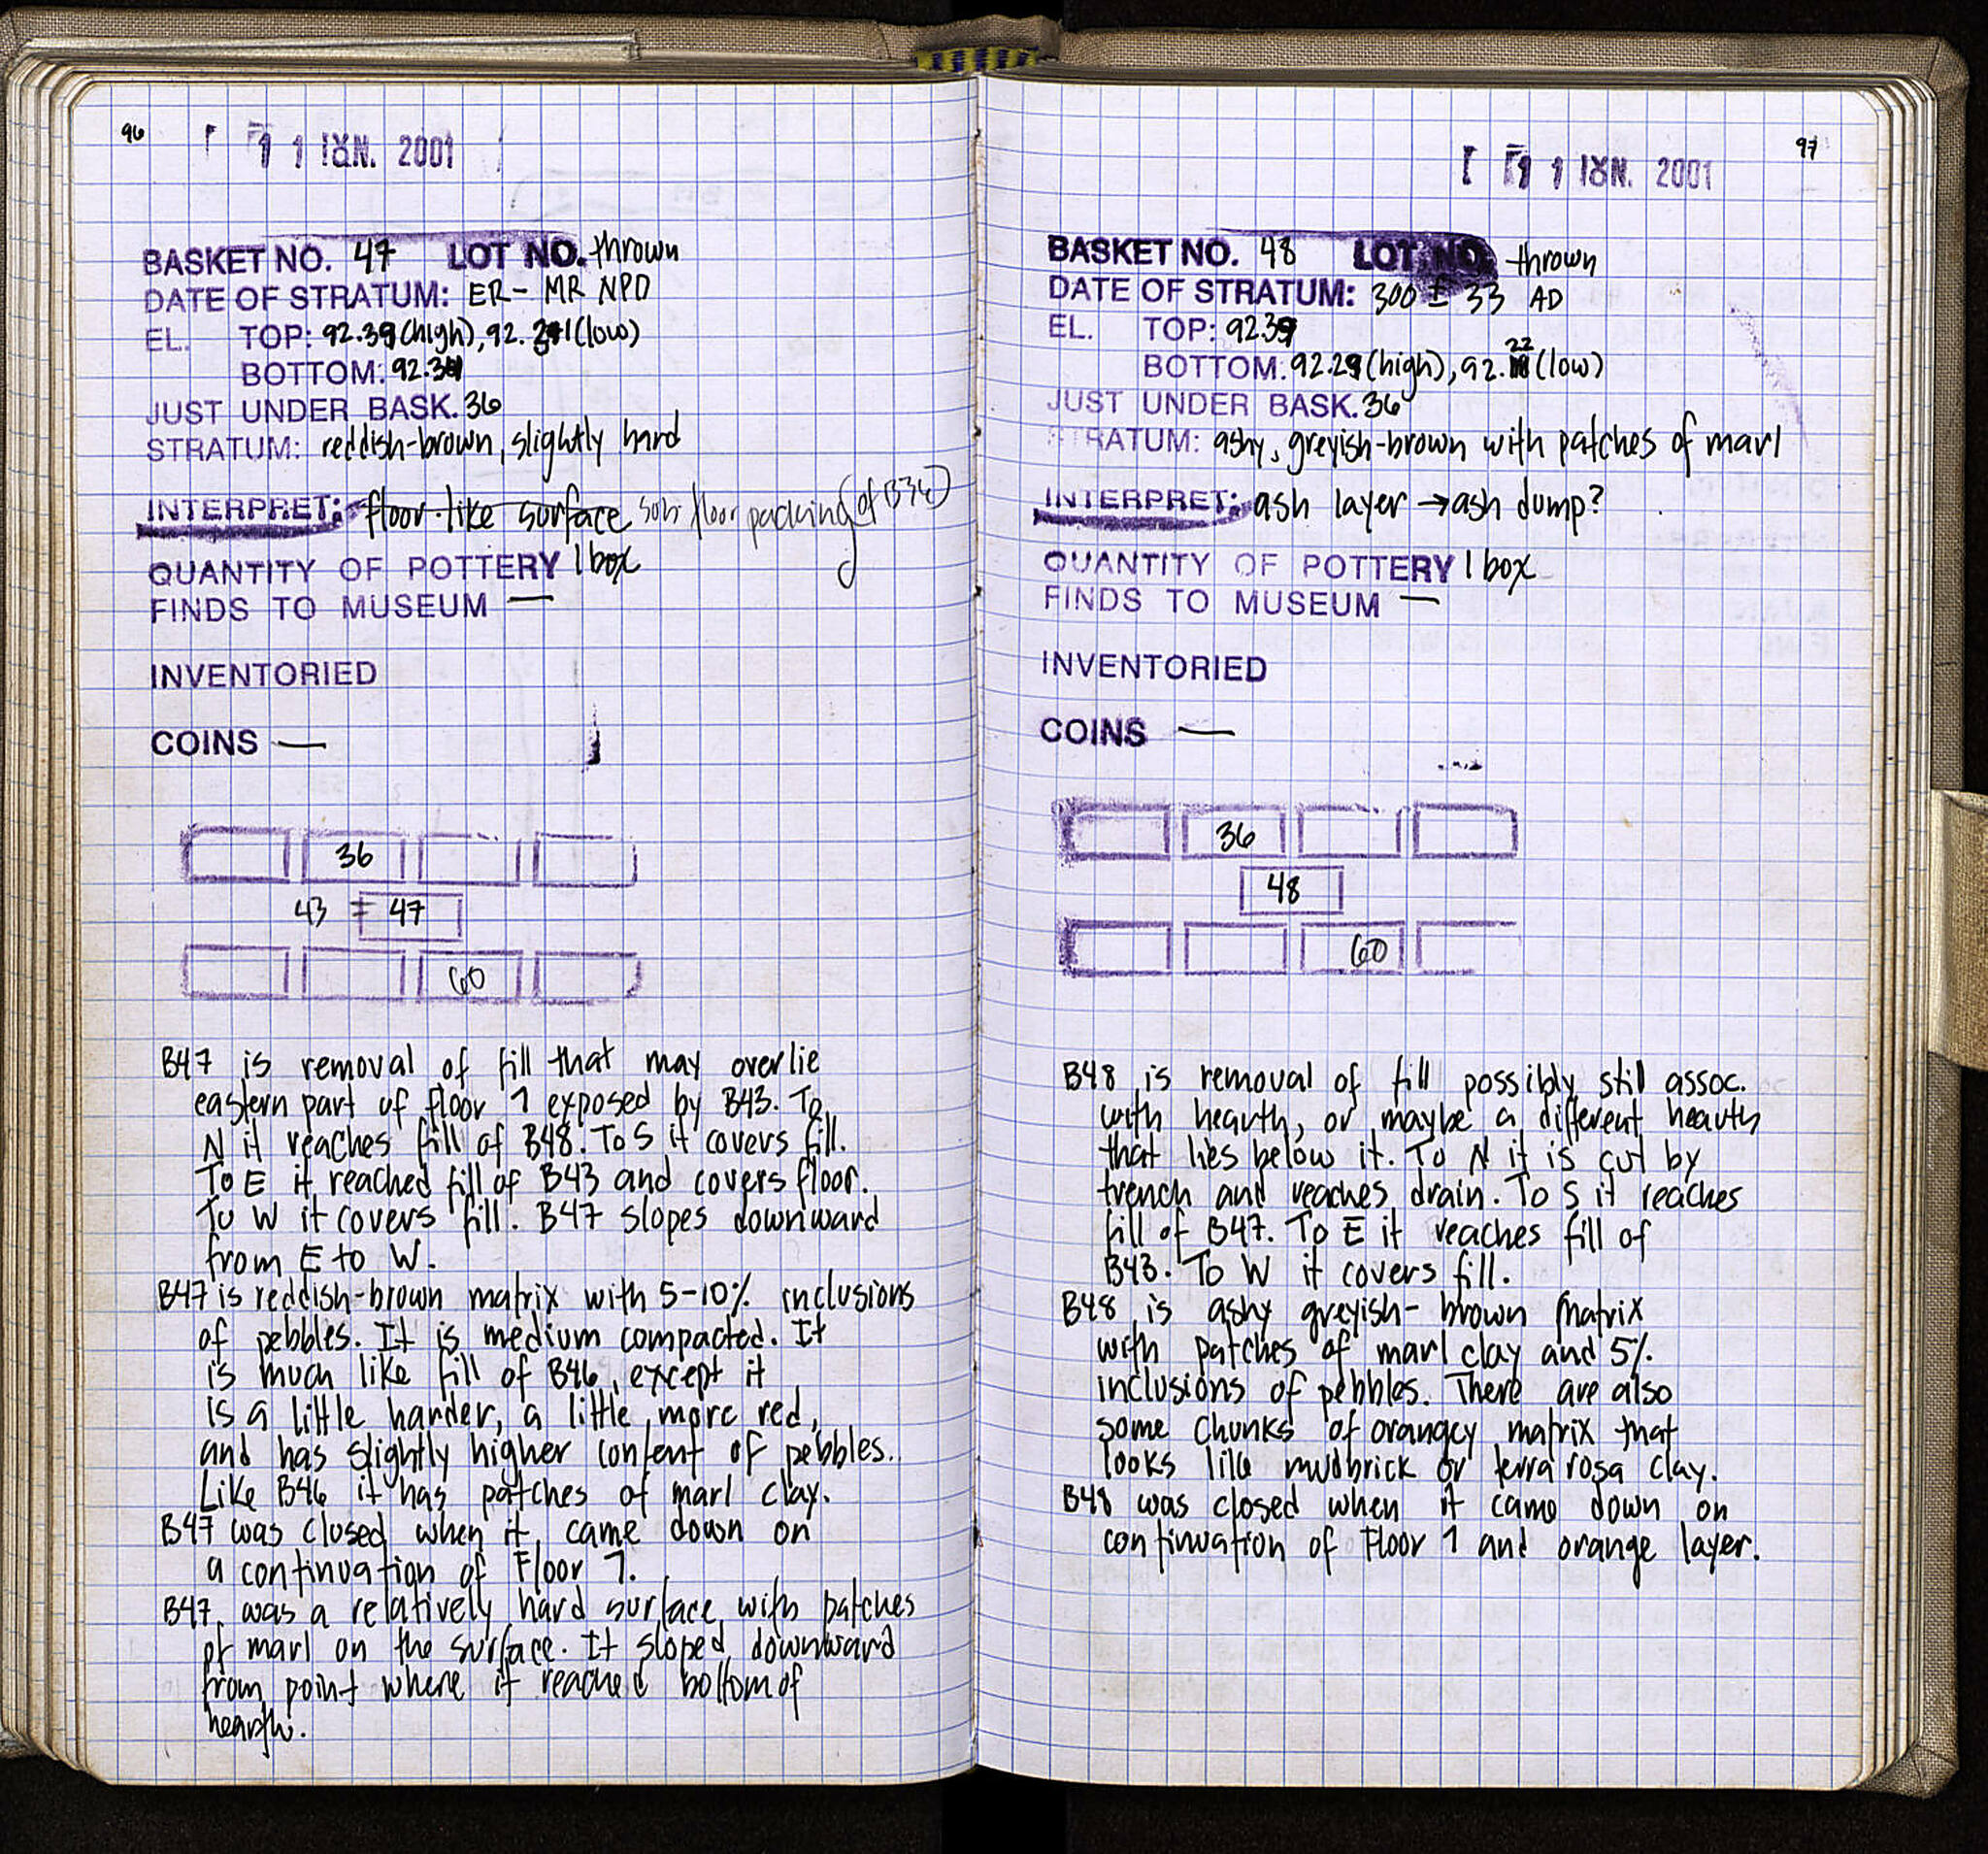 96
11 ΙΟΥΝ. 2001
BASKET NO. 47 LOT NO. thrown
DATE OF STRATUM: ER- MR NPD
EL. TOP: 92.39 (high), 92. (low)
BOTTOM: 92.34
JUST UNDER BASK. 36
STRATUM: reddish-brown, slightly hard
INTERPRET: floor-like surface floor packing (of B36)
QUANTITY OF POTTERY 1 box
FINDS TO MUSEUM —
INVENTORIED
COINS —
36
43 = 47
60
B47 is removal of fill that may overlie
eastern part of floor 7 exposed by B43. To
N it reaches fill of B48. To S it covers fill.
To E it reached fill of B43 and covers floor.
To W it covers fill. B47 slopes downward
from E to W.
B47 is reddish-brown matrix with 5-10% inclusions
of pebbles. It is medium compacted. It
is much like fill of B46, except it
is a little harder, a little more red,
and has slightly higher content of pebbles.
Like B46 it has patches of marl clay.
B47 was closed when it came down on
a continuation of Floor 7.
B47 was a relatively hard surface with patches
of marl on the surface. It sloped downward
from point where it reached bottom of
hearth.
97
11 ΙΟΥΝ. 2001
BASKET NO. 48 LOT NO. thrown
DATE OF STRATUM: 300 ± 33 AD
EL. TOP: 92.39
BOTTOM: 92.29 (high), 92.22 (low)
JUST UNDER BASK. 36
STRATUM: ashy, greyish-brown with patches of marl
INTERPRET: ash layer → ash dump?
QUANTITY OF POTTERY 1 box
FINDS TO MUSEUM —
INVENTORIED
COINS —
36
48
60
B48 is removal of fill possibly still assoc.
with hearth, or maybe a different hearth
that lies below it. To N it is cut by
trench and reaches drain. To S it reaches
fill of B47. To E it reaches fill of
B43. To W it covers fill.
B48 is ashy greyish-brown matrix
with patches of marl clay and 5%
inclusions of pebbles. There are also
some chunks of orangey matrix that
looks like mudbrick or terra rosa clay.
B48 was closed when it came down on
continuation of Floor 7 and orange layer.